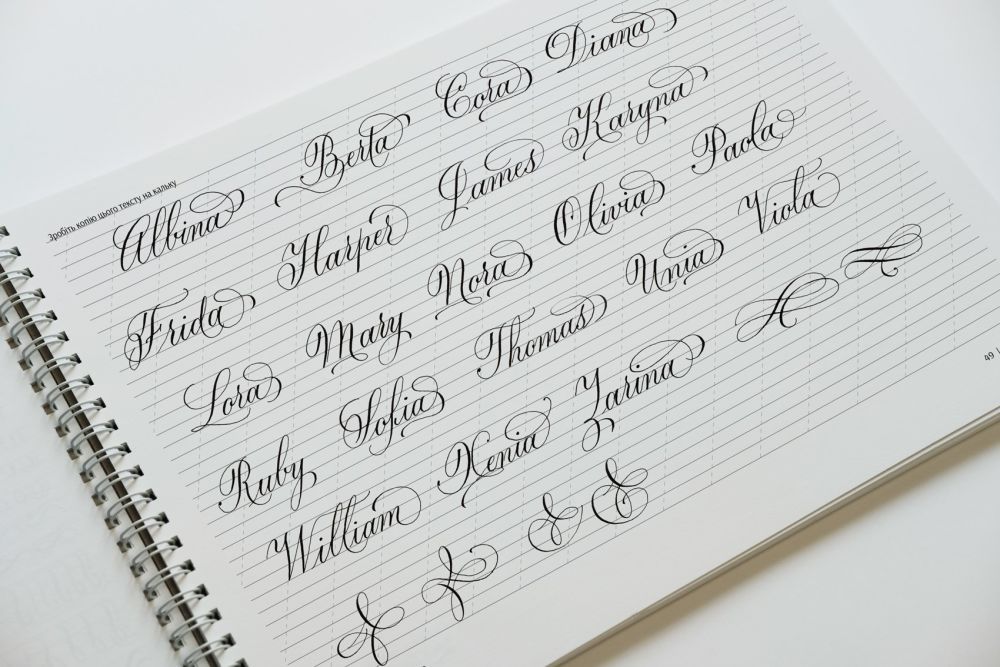 Зробіть копію цього тексту на кальку
Albina Berta Cora Diana
Frida Harper James Karyna
Lora Mary Nora Olivia Paola
Ruby Sofia Thomas Unia Viola
William Xenia Zarina
49